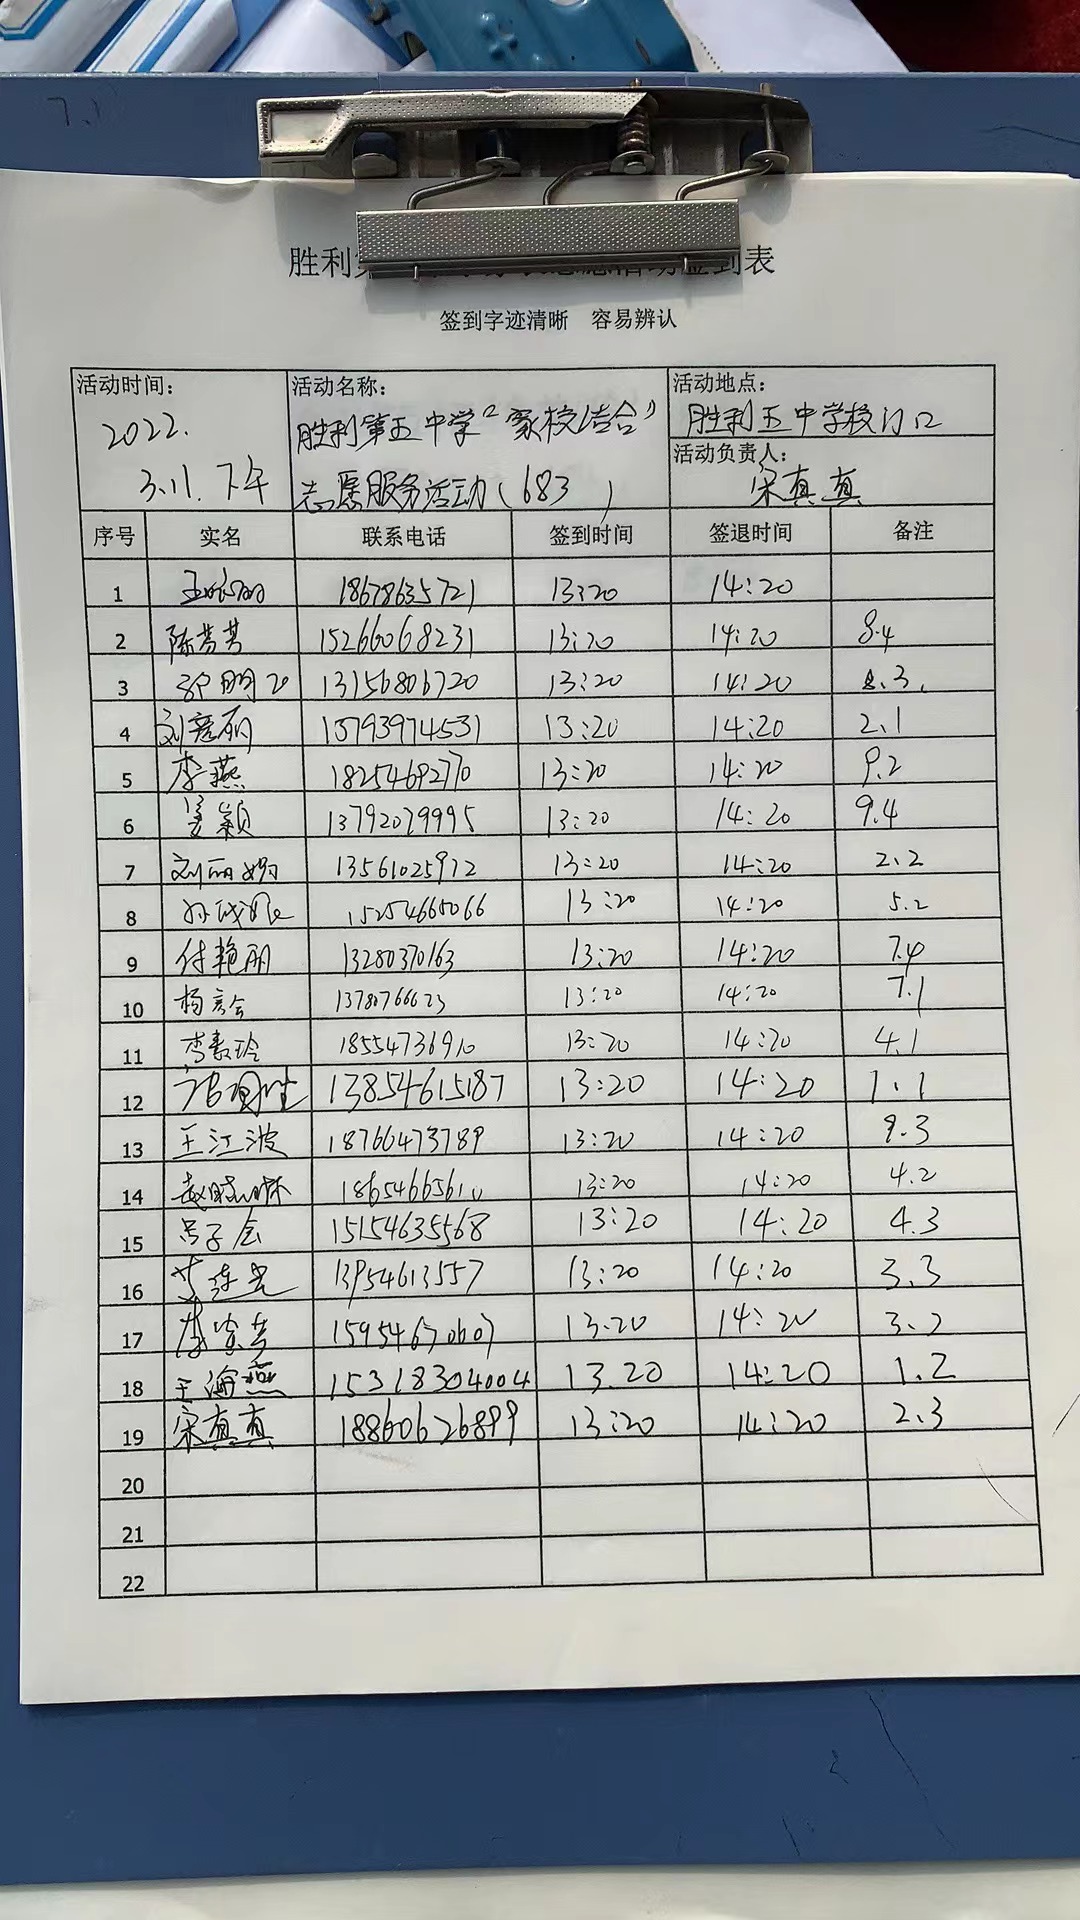 胜利
签到表
签到字迹清晰 容易辨认
活动时间: 活动名称: 活动地点:
2022. 胜利第五中学“家校结合” 胜利五中学校门口
3.11.下午 志愿服务活动(683) 活动负责人:
宋真真
序号 实名 联系电话 签到时间 签退时间 备注
1 18678635721 13:20 14:20
2 陈芳芳 15266068231 13:20 14:20 8.4
3 13156806720 13:20 14:20 3.
4 刘彦丽 13793974531 13:20 14:20 2.1
5 李燕 18254692770 13:20 14:20 9.2
6 姜颖 13792079995 13:20 14:20 9.4
7 刘丽娟 13561025972 13:20 14:20 2.2
8 15254665066 13:20 14:20 5.2
9 付艳丽 13280370163 13:20 14:20 7.4
10 杨彦会 13780766623 13:20 14:20 7.1
11 李素玲 18554736910 13:20 14:20 4.1
12 13854615187 13:20 14:20 1.1
13 王江波 18766473789 13:20 14:20 9.3
14 13:20 14:20 4.2
15 吕子会 15154635568 13:20 14:20 4.3
16 13954613557 13:20 14:20 3.3
17 15954670607 13.20 14:20 3.2
18 王海燕 15318304004 13.20 14:20 1.2
19 宋真真 18860626899 13:20 14:20 2.3
20
21
22
7.1